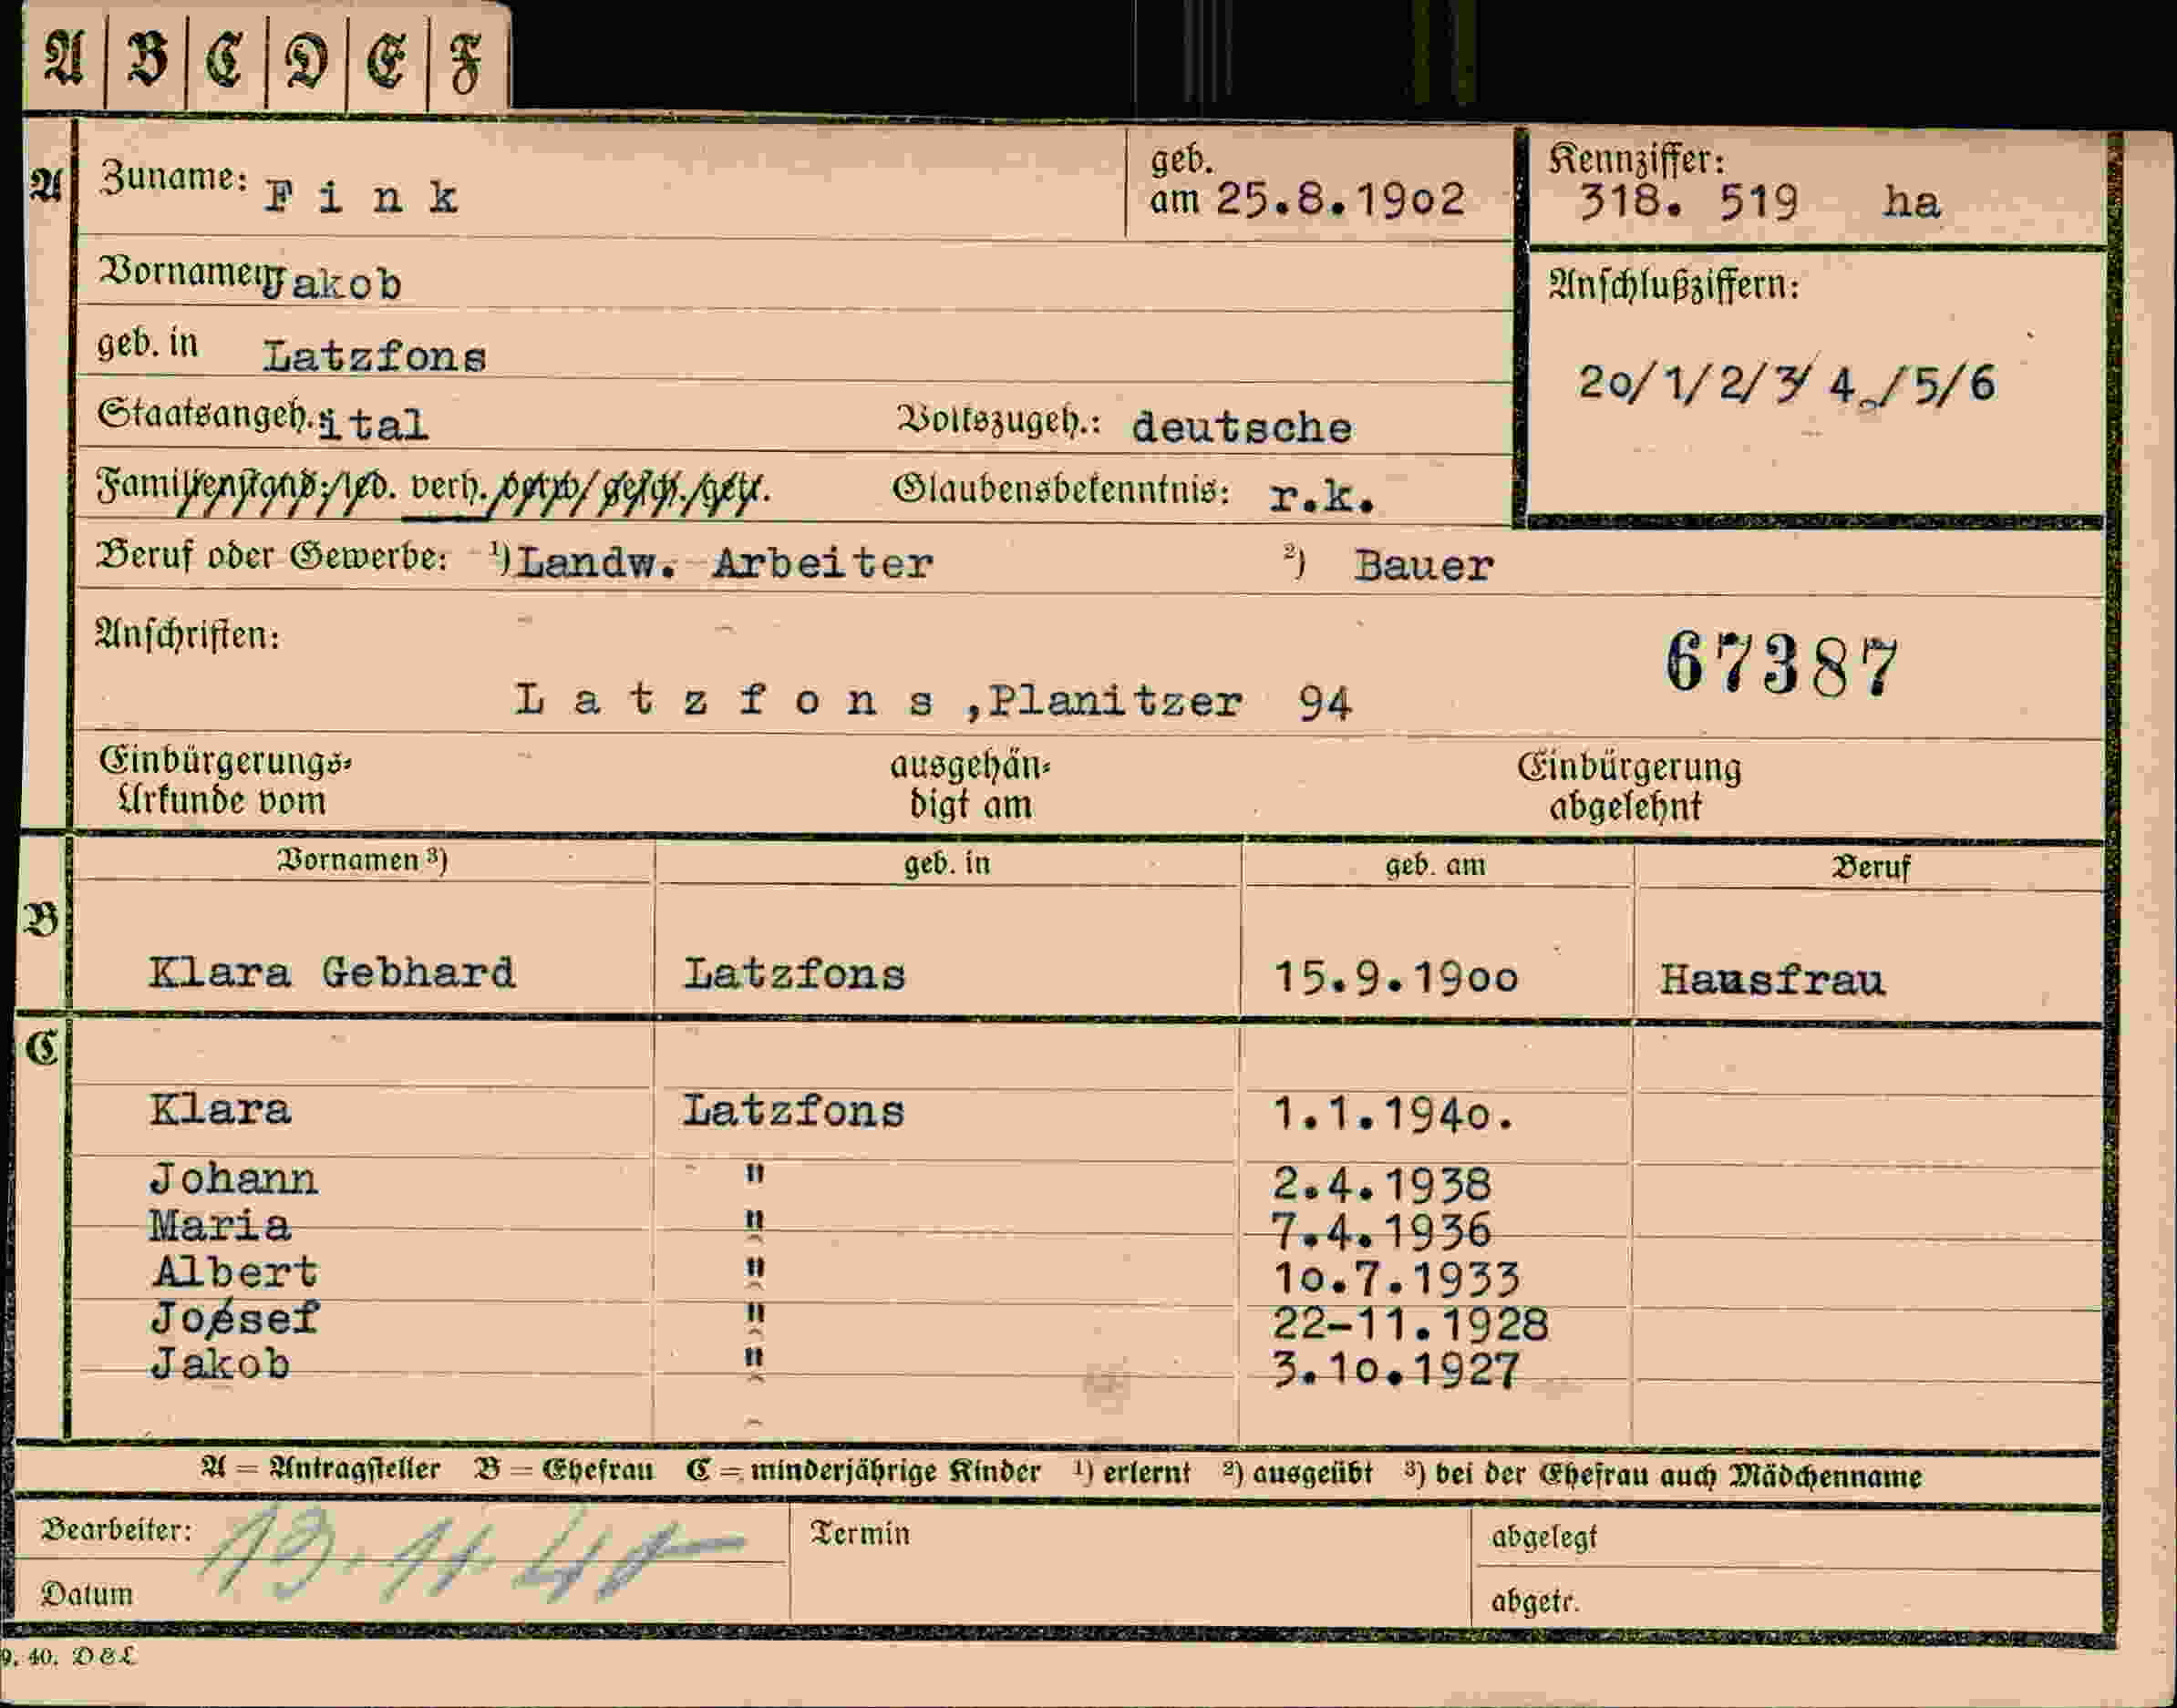 A B C D E F
A Zuname: F i n k geb. am 25.8.19o2 Kennziffer: 318. 519 ha
Vornamen Jakob Anschlußziffern:
geb. in Latzfons 2o/1/2/3/ 4 /5/6
Staatsangeh. ital Volkszugeh.: deutsche
Familienstand: led. verh. verw. gesch. getr. Glaubensbekenntnis: r.k.
Beruf oder Gewerbe: ¹) Landw. Arbeiter ²) Bauer
Anschriften: 67387
L a t z f o n s ,Planitzer 94
Einbürgerungs- ausgehän- Einbürgerung
Urkunde vom digt am abgelehnt
Vornamen ³) geb. in geb. am Beruf
B
Klara Gebhard Latzfons 15.9.19oo Hausfrau
C
Klara Latzfons 1.1.194o.
Johann " 2.4.1938
Maria " 7.4.1936
Albert " 1o.7.1933
Josef " 22-11.1928
Jakob " 3.1o.1927
A = Antragsteller B = Ehefrau C = minderjährige Kinder ¹) erlernt ²) ausgeübt ³) bei der Ehefrau auch Mädchenname
Bearbeiter: 13. 11. 40 Termin abgelegt
Datum abgetr.
9. 40. D & L